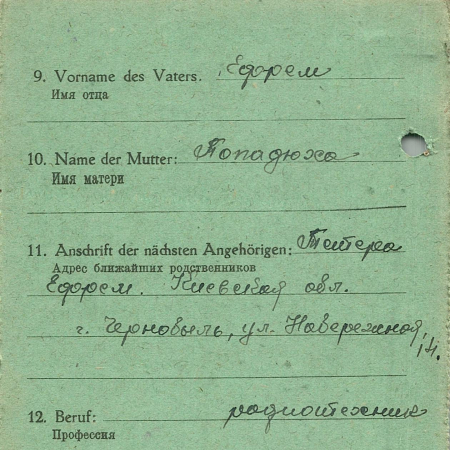 9. Vorname des Vaters. Ефрем
Имя отца
10. Name der Mutter: Попадюха
Имя матери
11. Anschrift der nächsten Angehörigen: Тетера
Адрес ближайших родственников
Ефрем. Киевская обл.
г. Чернобыль, ул. Набережная,
14.
12. Beruf: радиотехник
Профессия